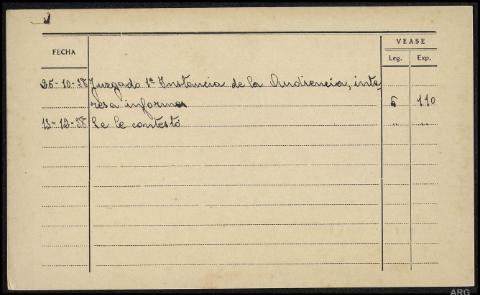 VEASE
FECHA
Leg. Exp.
25-10-38 Juzgado 1ª Instancia de la Audiencia, inte-
resa informes 6 110
13-12-38 Se le contestó " "
ARG